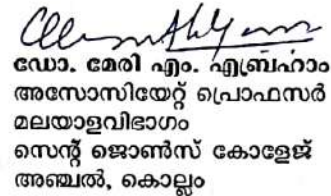 ഡോ. മേരി എം. എബ്രഹാം
അസോസിയേറ്റ് പ്രൊഫസർ
മലയാളവിഭാഗം
സെന്റ് ജൊൺസ് കോളേജ്
അഞ്ചൽ, കൊല്ലം